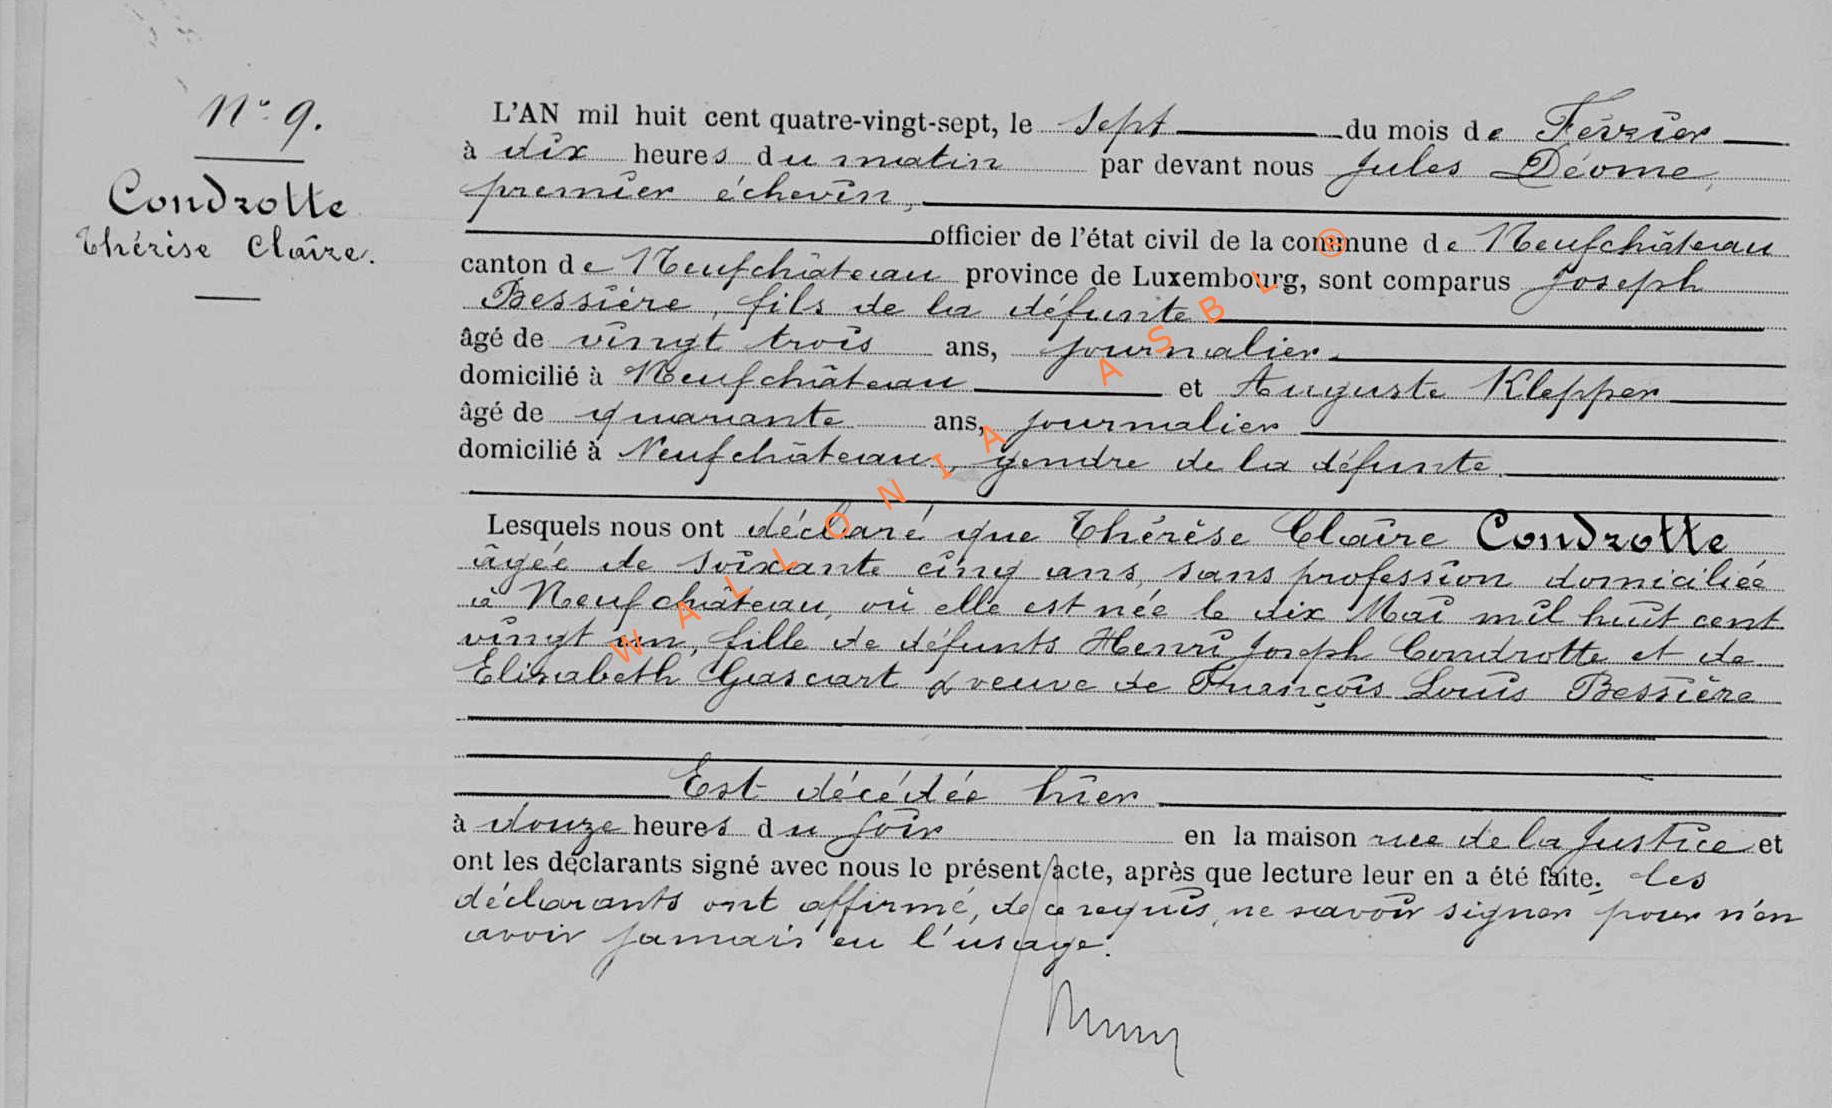 N° 9.
Condrotte
Thérèse Claire.
L'AN mil huit cent quatre-vingt-sept, le sept du mois de Février
à dix heures du matin par devant nous Jules Déome,
premier échevin,
officier de l'état civil de la commune de Neufchâteau
canton de Neufchâteau province de Luxembourg, sont comparus Joseph
Bessière, fils de la défunte
âgé de vingt trois ans, journalier.
domicilié à Neufchâteau et Auguste Klepper
âgé de quarante ans, journalier
domicilié à Neufchâteau, gendre de la défunte
Lesquels nous ont déclaré que Thérèse Claire Condrotte
âgée de soixante cinq ans, sans profession domiciliée
à Neufchâteau, où elle est née le dix Mai mil huit cent
vingt un, fille de défunts Henri Joseph Condrotte et de
Elisabeth Gascart & veuve de François Louis Bessière
Est décédée hier
à douze heures du soir en la maison rue de la Justice et
ont les déclarants signé avec nous le présent acte, après que lecture leur en a été faite. Les
déclarants ont affirmé, de ce requis, ne savoir signer pour n'en
avoir jamais eu l'usage.
WALLONIA ASBL ®